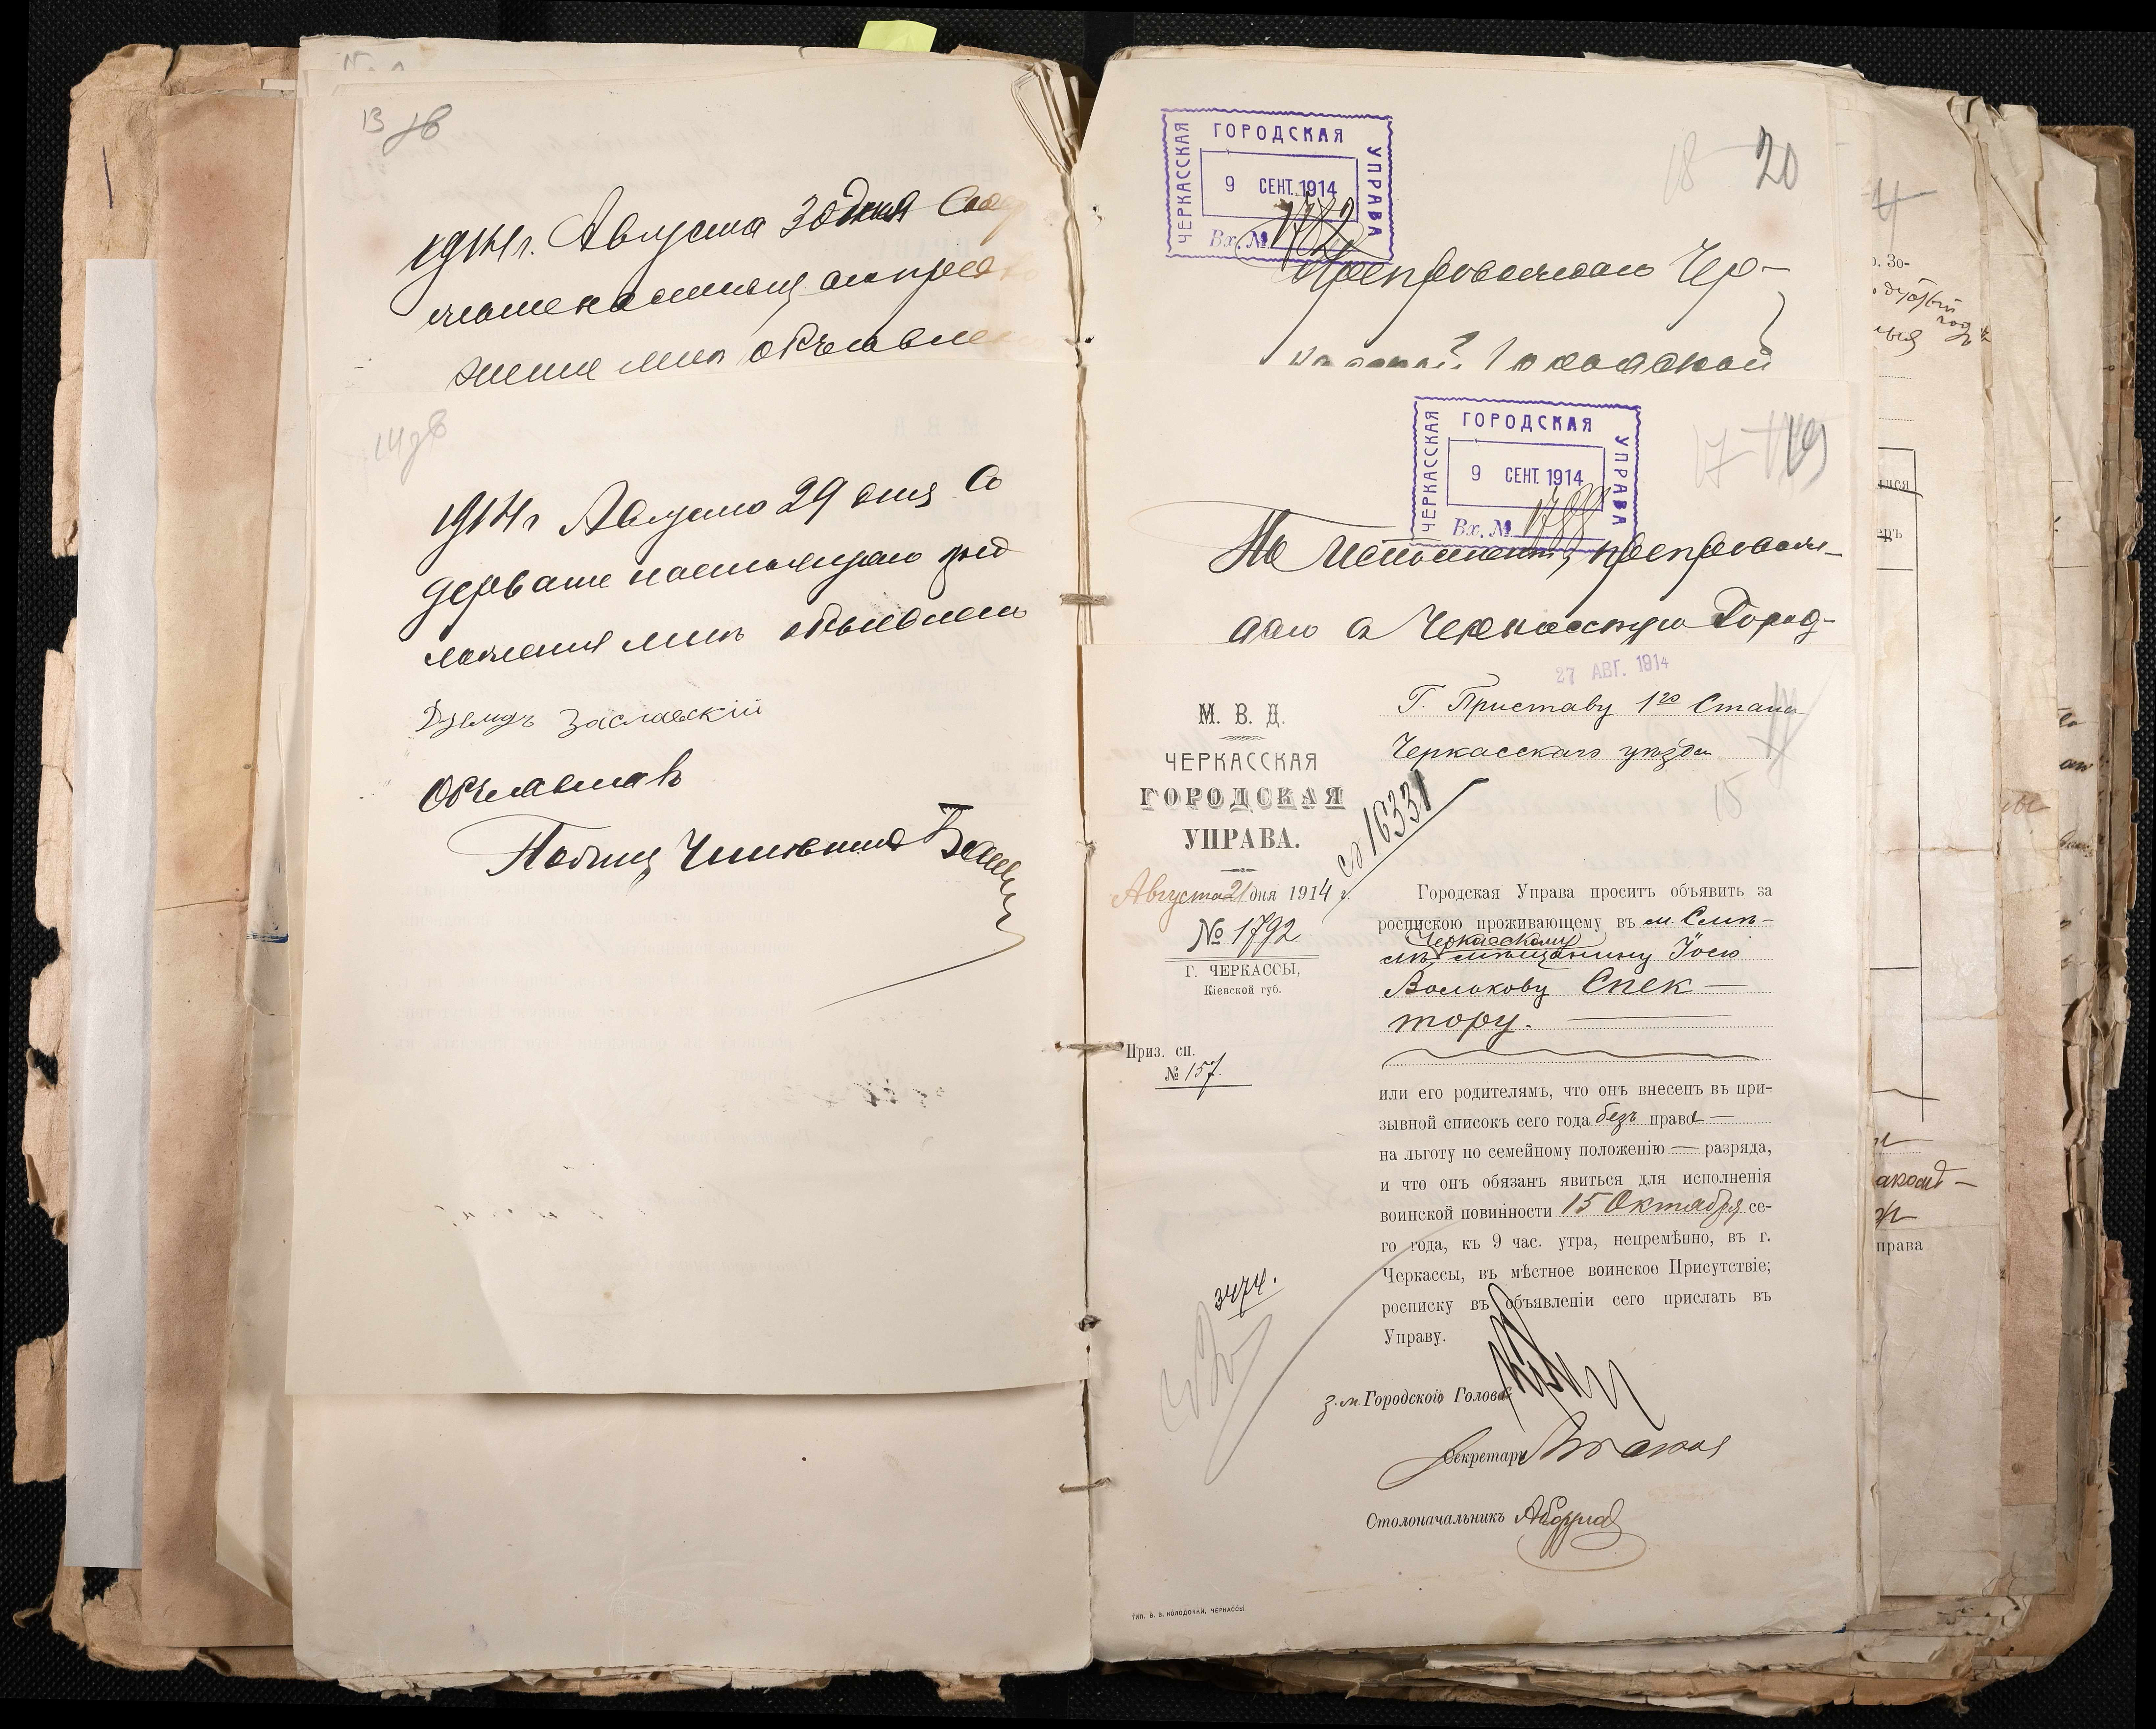 13
1914 г. Августа 30 дня Сод
жение мнѣ объявле
14
1914 г Августа 29 дня Со
держание настоящаго пред
ложения мнѣ объявлено
Заславскій
Объявилъ
Полиц Чиновник
ЧЕРКАССКАЯ ГОРОДСКАЯ УПРАВА
9 СЕНТ. 1914
Вх. №
18 20
Препровождаю Чер-
касской Городской
ЧЕРКАССКАЯ ГОРОДСКАЯ УПРАВА
9 СЕНТ. 1914
Вх. № 1788
17 19
По исполнении, препровож-
даю в Черкасскую Город-
27 АВГ. 1914
М. В. Д.
ЧЕРКАССКАЯ
ГОРОДСКАЯ
УПРАВА.
Августа 21 дня 1914 г.
№ 1792
Г. ЧЕРКАССЫ,
Кіевской губ.
Приз. сп.
№ 157.
16331
3474.
Г. Приставу 1го Стана
Черкасскаго уѣзда
15
Городская Управа проситъ объявить за
роспискою проживающему въ м. Смѣ-
Черкасскому
лѣ мѣщанину Іосю
Волькову Спек-
тору.
или его родителямъ, что онъ внесенъ въ при-
зывной списокъ сего года безъ права
на льготу по семейному положенію — разряда,
и что онъ обязанъ явиться для исполненія
воинской повинности 15 Октября се-
го года, къ 9 час. утра, непремѣнно, въ г.
Черкассы, въ мѣстное воинское Присутствіе;
росписку въ объявленіи сего прислать въ
Управу.
з.м. Городского Головы
Секретарь
Столоначальникъ
ТИП. В. В. КОЛОДОЧКИ, ЧЕРКАССЫ
права